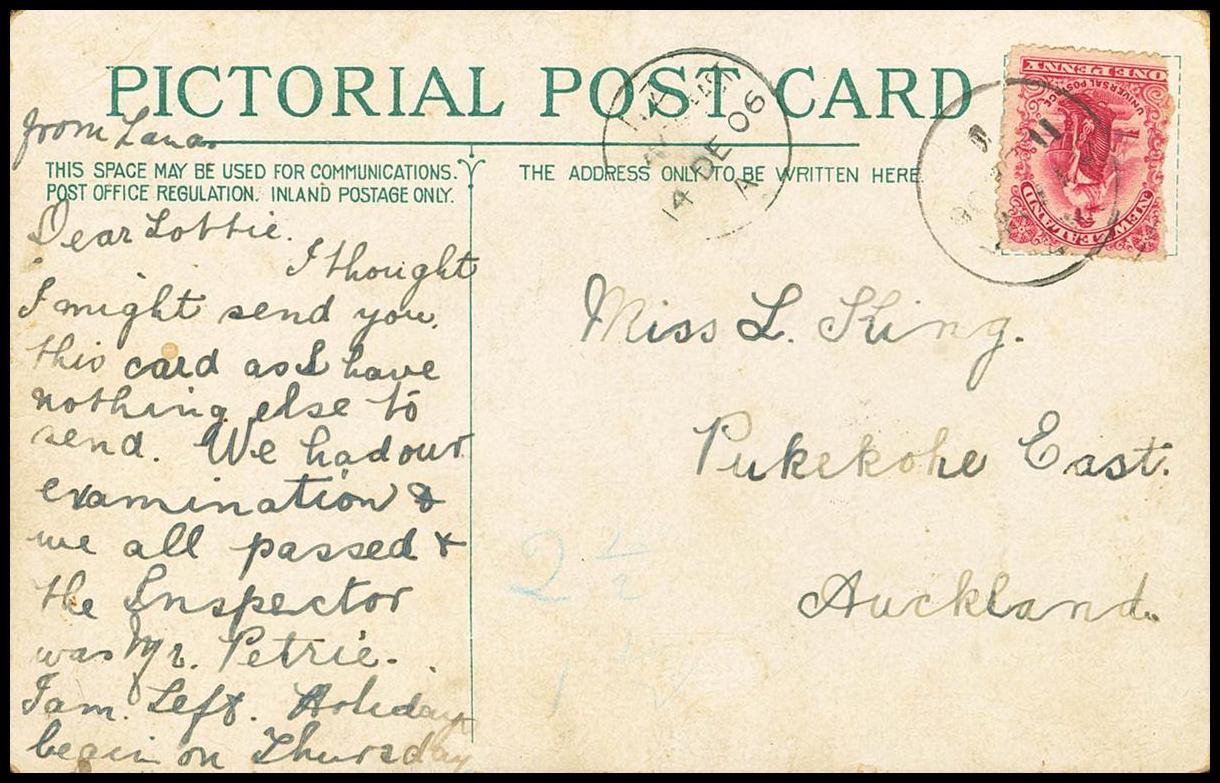 PICTORIAL POST CARD
from Lana.
THIS SPACE MAY BE USED FOR COMMUNICATIONS.
POST OFFICE REGULATION. INLAND POSTAGE ONLY.
Dear Lottie.
I thought
I might send you.
this card as I have
nothing else to
send. We had our
examination &
we all passed &
the Inspector
was Mr. Petrie.
I am Left. Holidays
begin on Thursday
THE ADDRESS ONLY TO BE WRITTEN HERE
Miss L. King.
Pukekohe East.
Auckland.
2 1/2
14 DE 06
A
ONE PENNY
UNIVERSAL POSTAGE
NEW ZEALAND